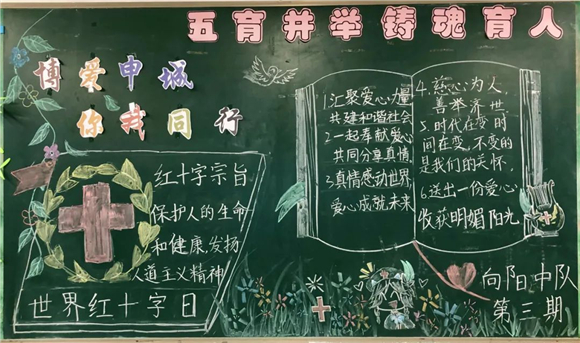 五育并举 铸魂育人
博爱申城
你我同行
红十字宗旨
保护人的生命
和健康,发扬
人道主义精神
世界红十字日
1.汇聚爱心力量
共建和谐社会
2.一起奉献爱心
共同分享真情
3.真情感动世界,
爱心成就未来
4.慈心为人,
善举济世
5.时代在变时
间在变,不变的
是我们的关怀.
6.送出一份爱心
收获明媚阳光
向阳中队
第三期